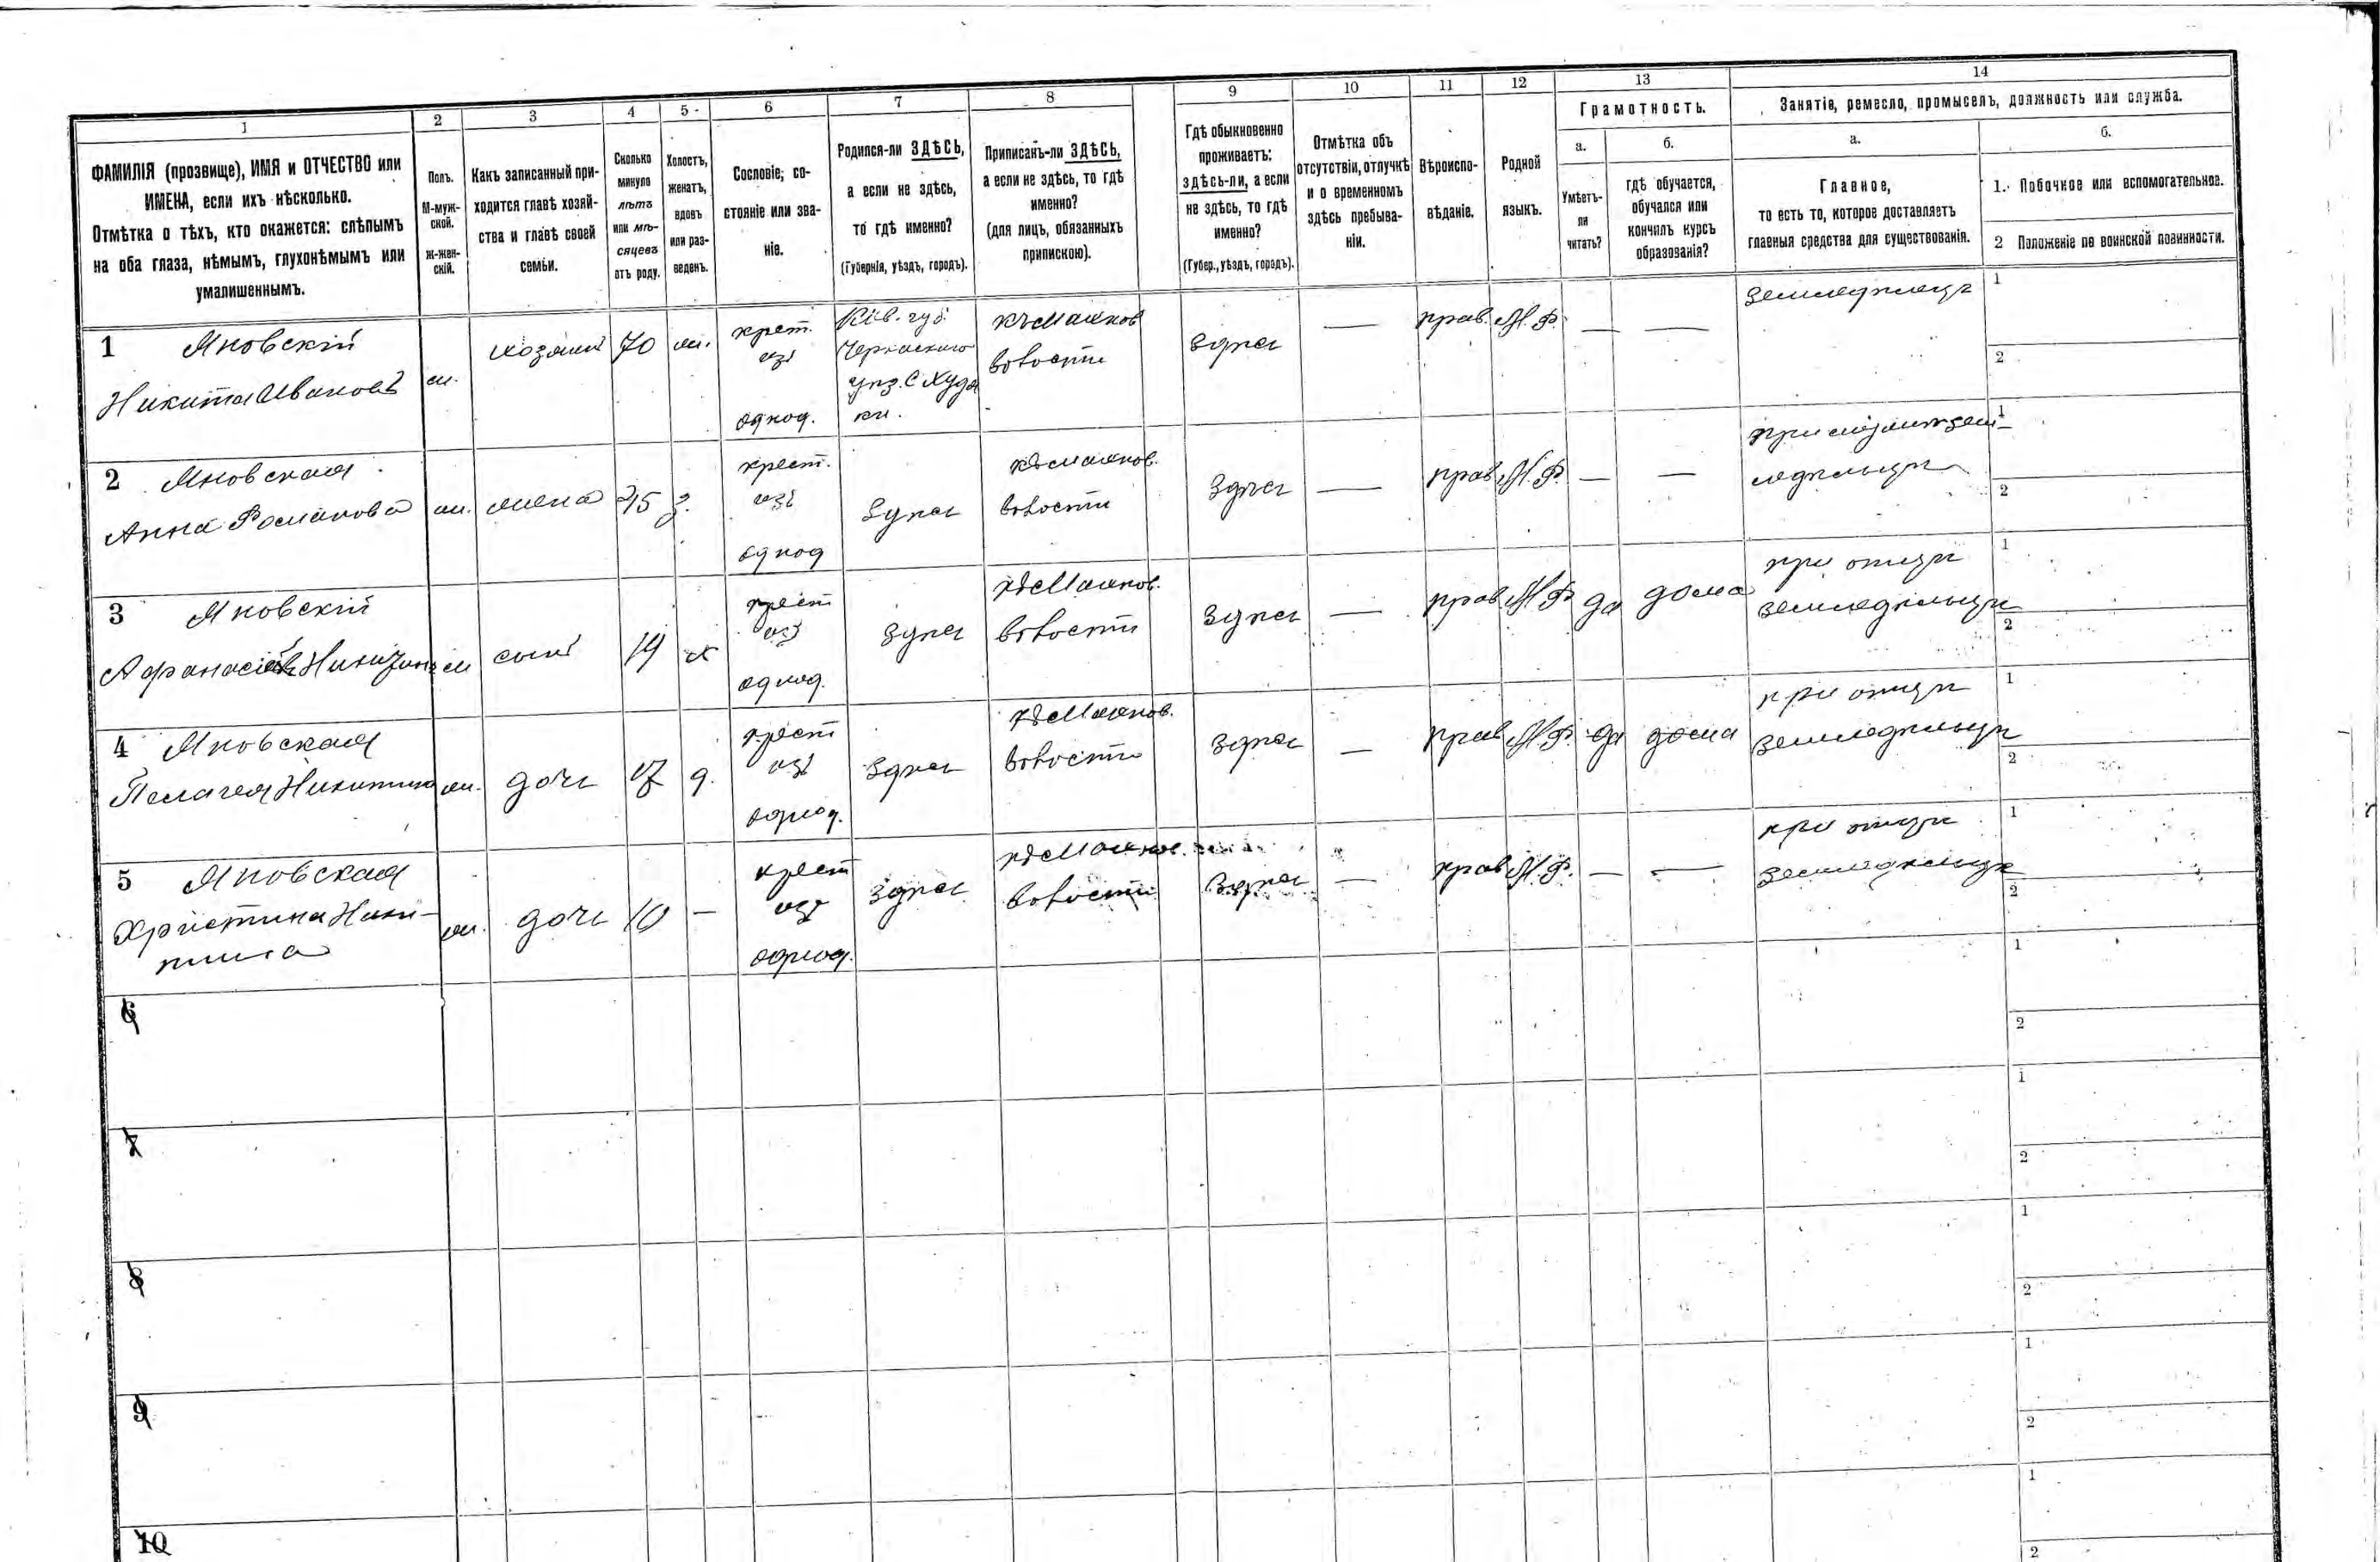 1
2
3
4
5
6
7
8
9
10
11
12
13
14
ФАМИЛІЯ (прозвище), ИМЯ и ОТЧЕСТВО или
ИМЕНА, если ихъ нѣсколько.
Отмѣтка о тѣхъ, кто окажется: слѣпымъ
на оба глаза, нѣмымъ, глухонѣмымъ или
умалишеннымъ.
Полъ.
М-муж-
ской.
Ж-жен-
скій.
Какъ записанный при-
ходится главѣ хозяй-
ства и главѣ своей
семьи.
Сколько
минуло
лѣтъ
или мѣ-
сяцевъ
отъ роду.
Холостъ,
женатъ,
вдовъ
или раз-
веденъ.
Сословіе, со-
стояніе или зва-
ніе.
Родился-ли ЗДѢСЬ,
а если не здѣсь,
то гдѣ именно?
(Губернія, уѣздъ, городъ).
Приписанъ-ли ЗДѢСЬ,
а если не здѣсь, то гдѣ
именно?
(для лицъ, обязанныхъ
припискою).
Гдѣ обыкновенно
проживаетъ:
здѣсь-ли, а если
не здѣсь, то гдѣ
именно?
(Губер., уѣздъ, городъ).
Отмѣтка объ
отсутствіи, отлучкѣ
и о временномъ
здѣсь пребыва-
ніи.
Вѣроиспо-
вѣданіе.
Родной
языкъ.
Грамотность.
а.
Умѣетъ-
ли
читать?
б.
гдѣ обучается,
обучался или
кончилъ курсъ
образованія?
Занятіе, ремесло, промыселъ, должность или служба.
а.
Главное,
то есть то, которое доставляетъ
главныя средства для существованія.
б.
1. Побочное или вспомогательное.
2 Положеніе по воинской повинности.
1 Яновскій
Никита Ивановъ
м.
хозяинъ
70
ж.
крест.
изъ
однод.
Кіев. губ.
Черкаскаго
уѣз. С Худя
ки.
волости
здѣсь
—
прав.
М. Р.
—
—
земледѣлецъ
1
2
2 Яновская
Анна Романова
ж.
жена
45
з.
крест.
изъ
однод
здѣсь
волости
здѣсь
—
прав.
М. Р.
—
—
1
2
3 Яновскій
м
сынъ
19
х
крест
изъ
однод.
здѣсь
волости
здѣсь
—
прав.
М Р
да
дома
при отцѣ
земледѣльцѣ
1
2
4 Яновская
Пелагея Никитина
ж.
дочь
17
д.
крест
изъ
однод.
здѣсь
волости
здѣсь
—
прав.
М. Р.
да
дома
при отцѣ
земледѣльцѣ
1
2
5 Яновская
Христина Ники-
тина
ж.
дочь
10
—
крест
изъ
однод.
здѣсь
волости
здѣсь
—
прав
М. Р.
—
—
при отцѣ
земледѣльцѣ
1
2
6
1
2
7
1
2
8
1
2
9
1
2
10
1
2